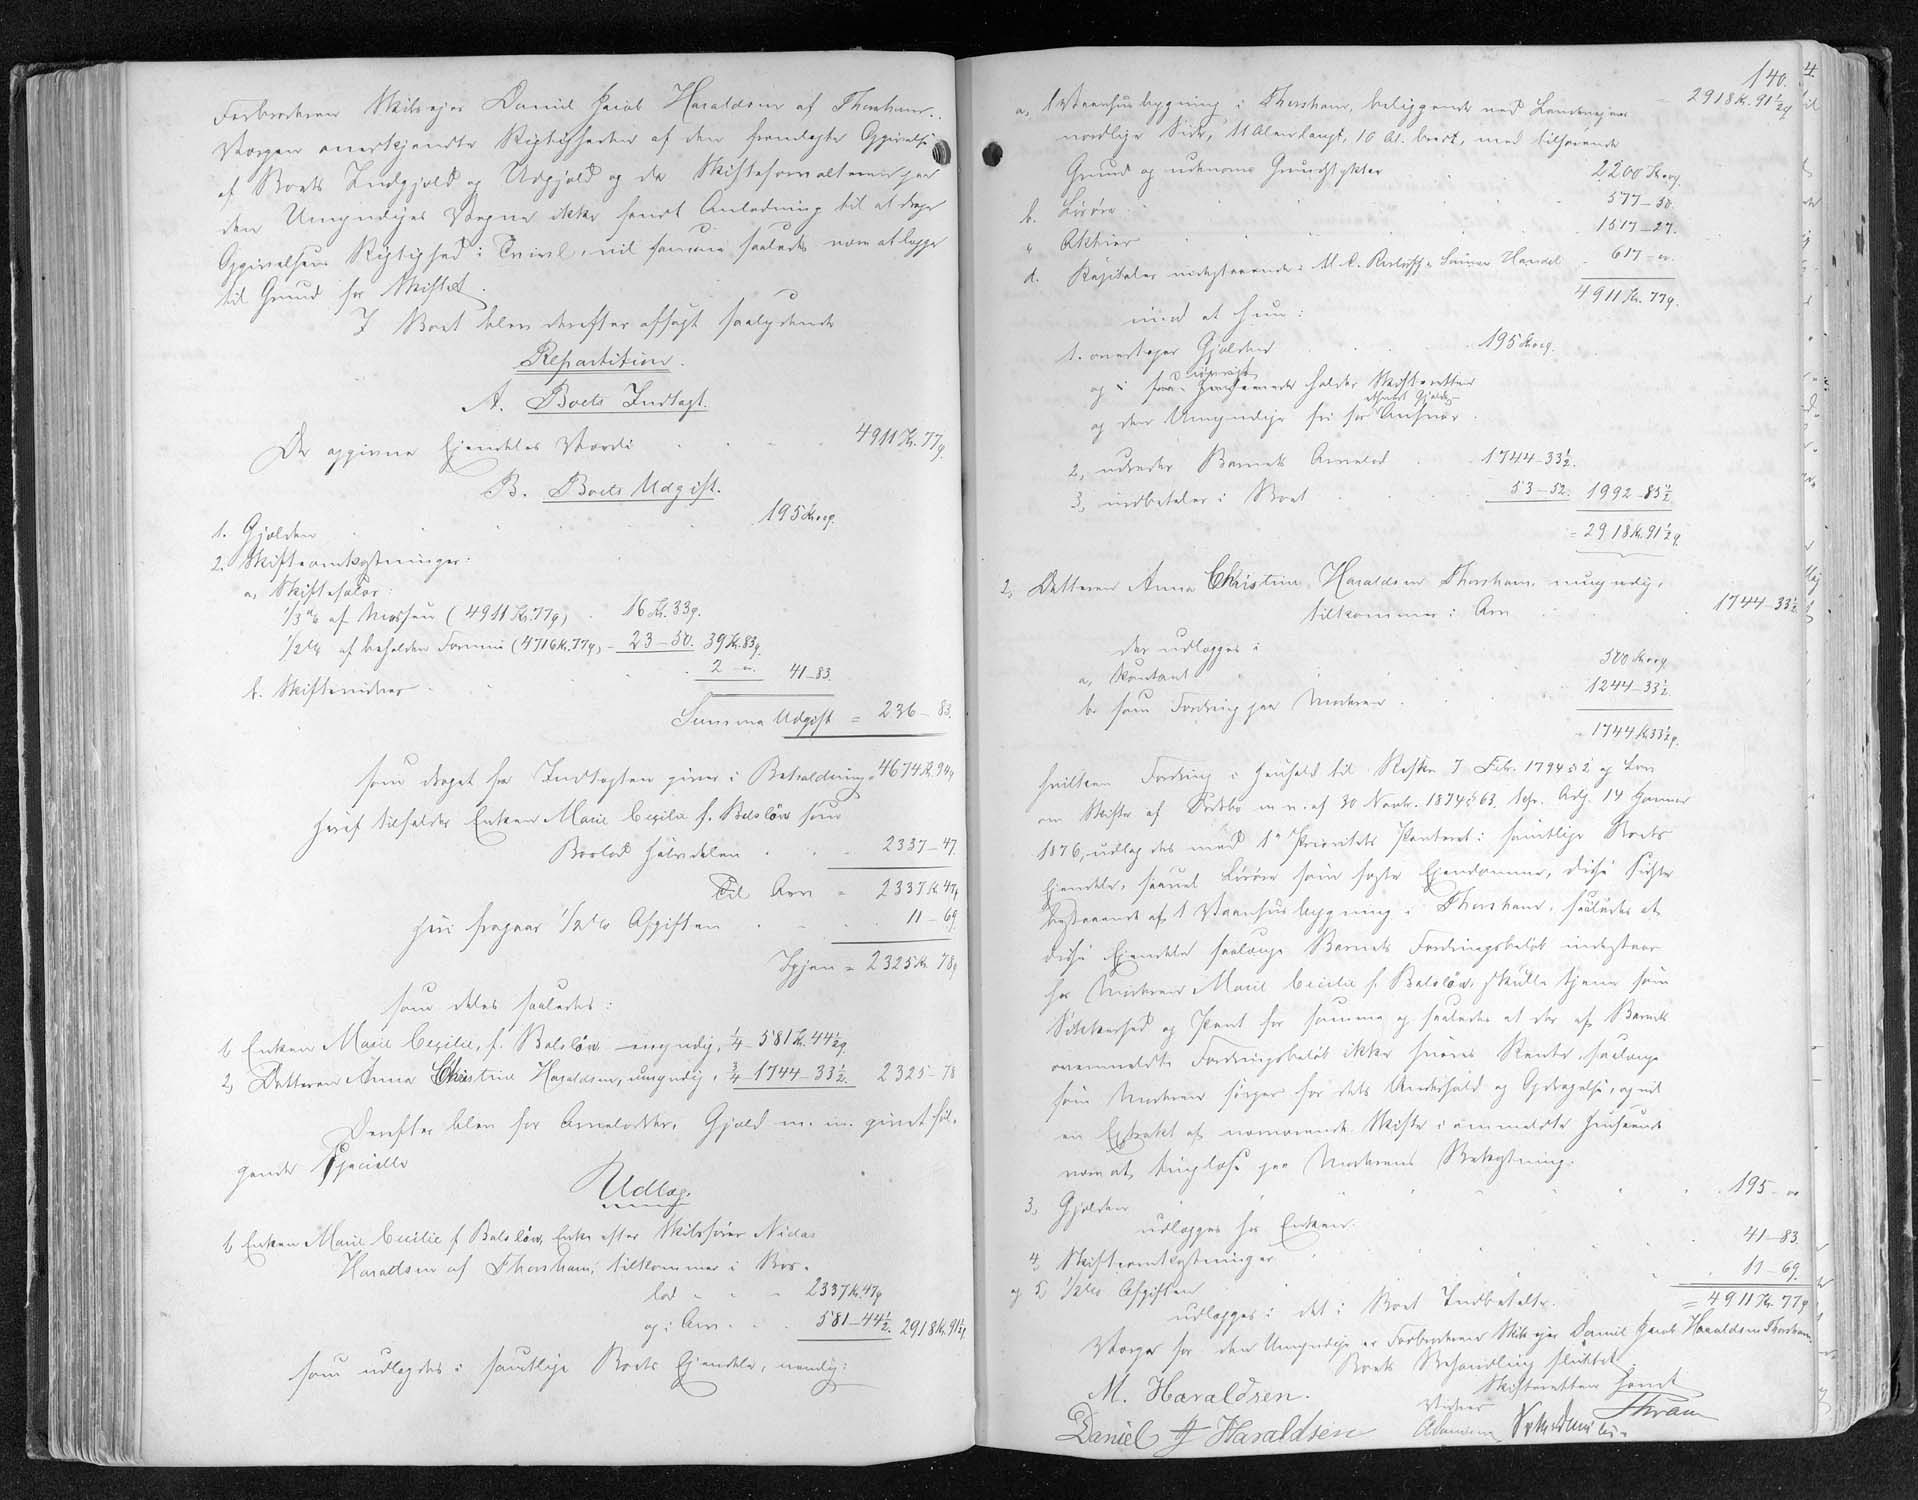 Farbroderen Skibsejer Daniel Jacob Haraldsen af Thorshavn.
Værgen anerkjendte Rigtigheden af den fremlagte Opgivelse
af Boets Indgjæld og Udgjæld og da Skifteforvalteren paa
den Umyndiges Vegne ikke fandt Anledning til at drage
Opgivelsens Rigtighed i Tvivl, vil samme saaledes være at lægge
til Grund for Skiftet.
I Boet blev derefter afsagt saalydende
Repartition.
A. Boets Indtægt.
De opgivne Ejendeles Værdi 4911 Kr. 77 ø.
B. Boets Udgift.
1. Gjælden 195 Kr. ø.
2. Skifteomkostninger:
a, Skiftesalær:
1/3 % af Massen (4911 Kr. 77 ø) 16 Kr. 33 ø.
1/2 % af beholden Formue (4716 Kr. 77 ø) - 23 - 50. 39 Kr. 83 ø.
b. Skiftevidner 2 - " 41 - 83.
Summa Udgift = 236 - 83.
som draget fra Indtægten giver i Beholdning 4674 Kr. 94 ø
heraf tilfalder Enken Marie Cecilie f. Balsløw som
Boslod Halvdelen 2337 - 47.
Til Arv = 2337 Kr. 47 ø
heri fragaar 1/2 % Afgiften 11 - 69.
Igjen = 2325 Kr. 78 ø
som deles saaledes:
1, Enken Marie Cecilie, f. Balsløw myndig, 1/4 - 581 Kr. 44 1/2 ø.
2, Datteren Anna Christine Haraldsen, umyndig, 3/4 - 1744 - 33 1/2. 2325 - 78
Derefter blev for Arvelodder, Gjæld m. m. gjort føl-
gende specielle
Udlæg.
1, Enken Marie Cecilie f Balsløw, Enke efter Skibsfører Niclas
Haraldsen af Thorshavn, tilkommer i Bos-
lod - - - 2337 Kr. 47 ø
og i Arv - - 581 - 44 1/2. 2918 Kr. 91 1/2 ø.
som udlægges i samtlige Boets Ejendele, nemlig:
140.
2918 Kr. 91 1/2 ø
a, 1 Vaanhusbygning i Thorshavn, beliggende ved Landevejens
nordlige Side, 11 Alen langt, 10 Al. bredt, med tilhørende
Grund og udenoms Grundstykker 2200 Kr. ø.
b. Løsøre 577 - 50.
c Aktier 1517 - 27.
d. Kapitaler indestaaende i Handel 617 - ".
4911 Kr. 77 ø.
mod at hun:
1. overtager Gjælden 195 Kr. ø.
og i saa Henseende holder Skifteretten
og den Umyndige fri for Ansvar.
2, udreder Barnets Arvelod 1744 - 33 1/2.
3, indbetaler i Boet 53 - 52. 1992 - 85 1/2
= 2918 Kr. 91 1/2 ø.
2, Datteren Anna Christine Haraldsen Thorshavn, umyndig,
tilkommer i Arv 1744 - 33 1/2
der udlægges i
a, Kontant 500 Kr. ø
b. som Fordring paa Moderen 1244 - 33 1/2.
- 1744 Kr. 33 1/2 ø.
hvilken Fordring i Henhold til Reskr. 7 Febr. 1794 § 2 og Lov
om Skifte af Dødsbo m. v. af 30 Novbr. 1874 § 63, Adg. 14 Januar
1876, udlægges med 1ste Prioritets Panteret i samtlige Boets
Ejendele, saavel Løsøre som faste Ejendomme, disse sidste
bestaaende af 1 Vaanhusbygning i Thorshavn, saaledes at
disse Ejendele saalænge Barnets Fordringsbeløb indestaar
hos Moderen Marie Cecilie f. Balsløw, skulle tjene som
Sikkerhed og Pant for samme og saaledes at der af Barnets
ovenmeldte Fordringsbeløb ikke svares Rente, saalænge
som Moderen sørger for dets Underhold og Opdragelse, og vil
en Extrakt af nærværende Skifte i anmeldte Henseende
være at tinglæse paa Moderens Bekostning.
3, Gjælden 195 - "
udlægges hos Enken.
4, Skifteomkostninger 41 - 83.
og 5, 1/2 % Afgiften 11 - 69.
udlægges i det i Boet Indbetalte. = 4911 Kr. 77 ø
Værge for den Umyndige er Farbroderen Skibsejer Daniel Jacob Haraldsen Thorshavn.
Boets Behandling sluttet.
Skifteretten hævet
M. Haraldsen.
Vidner
Daniel J Haraldsen